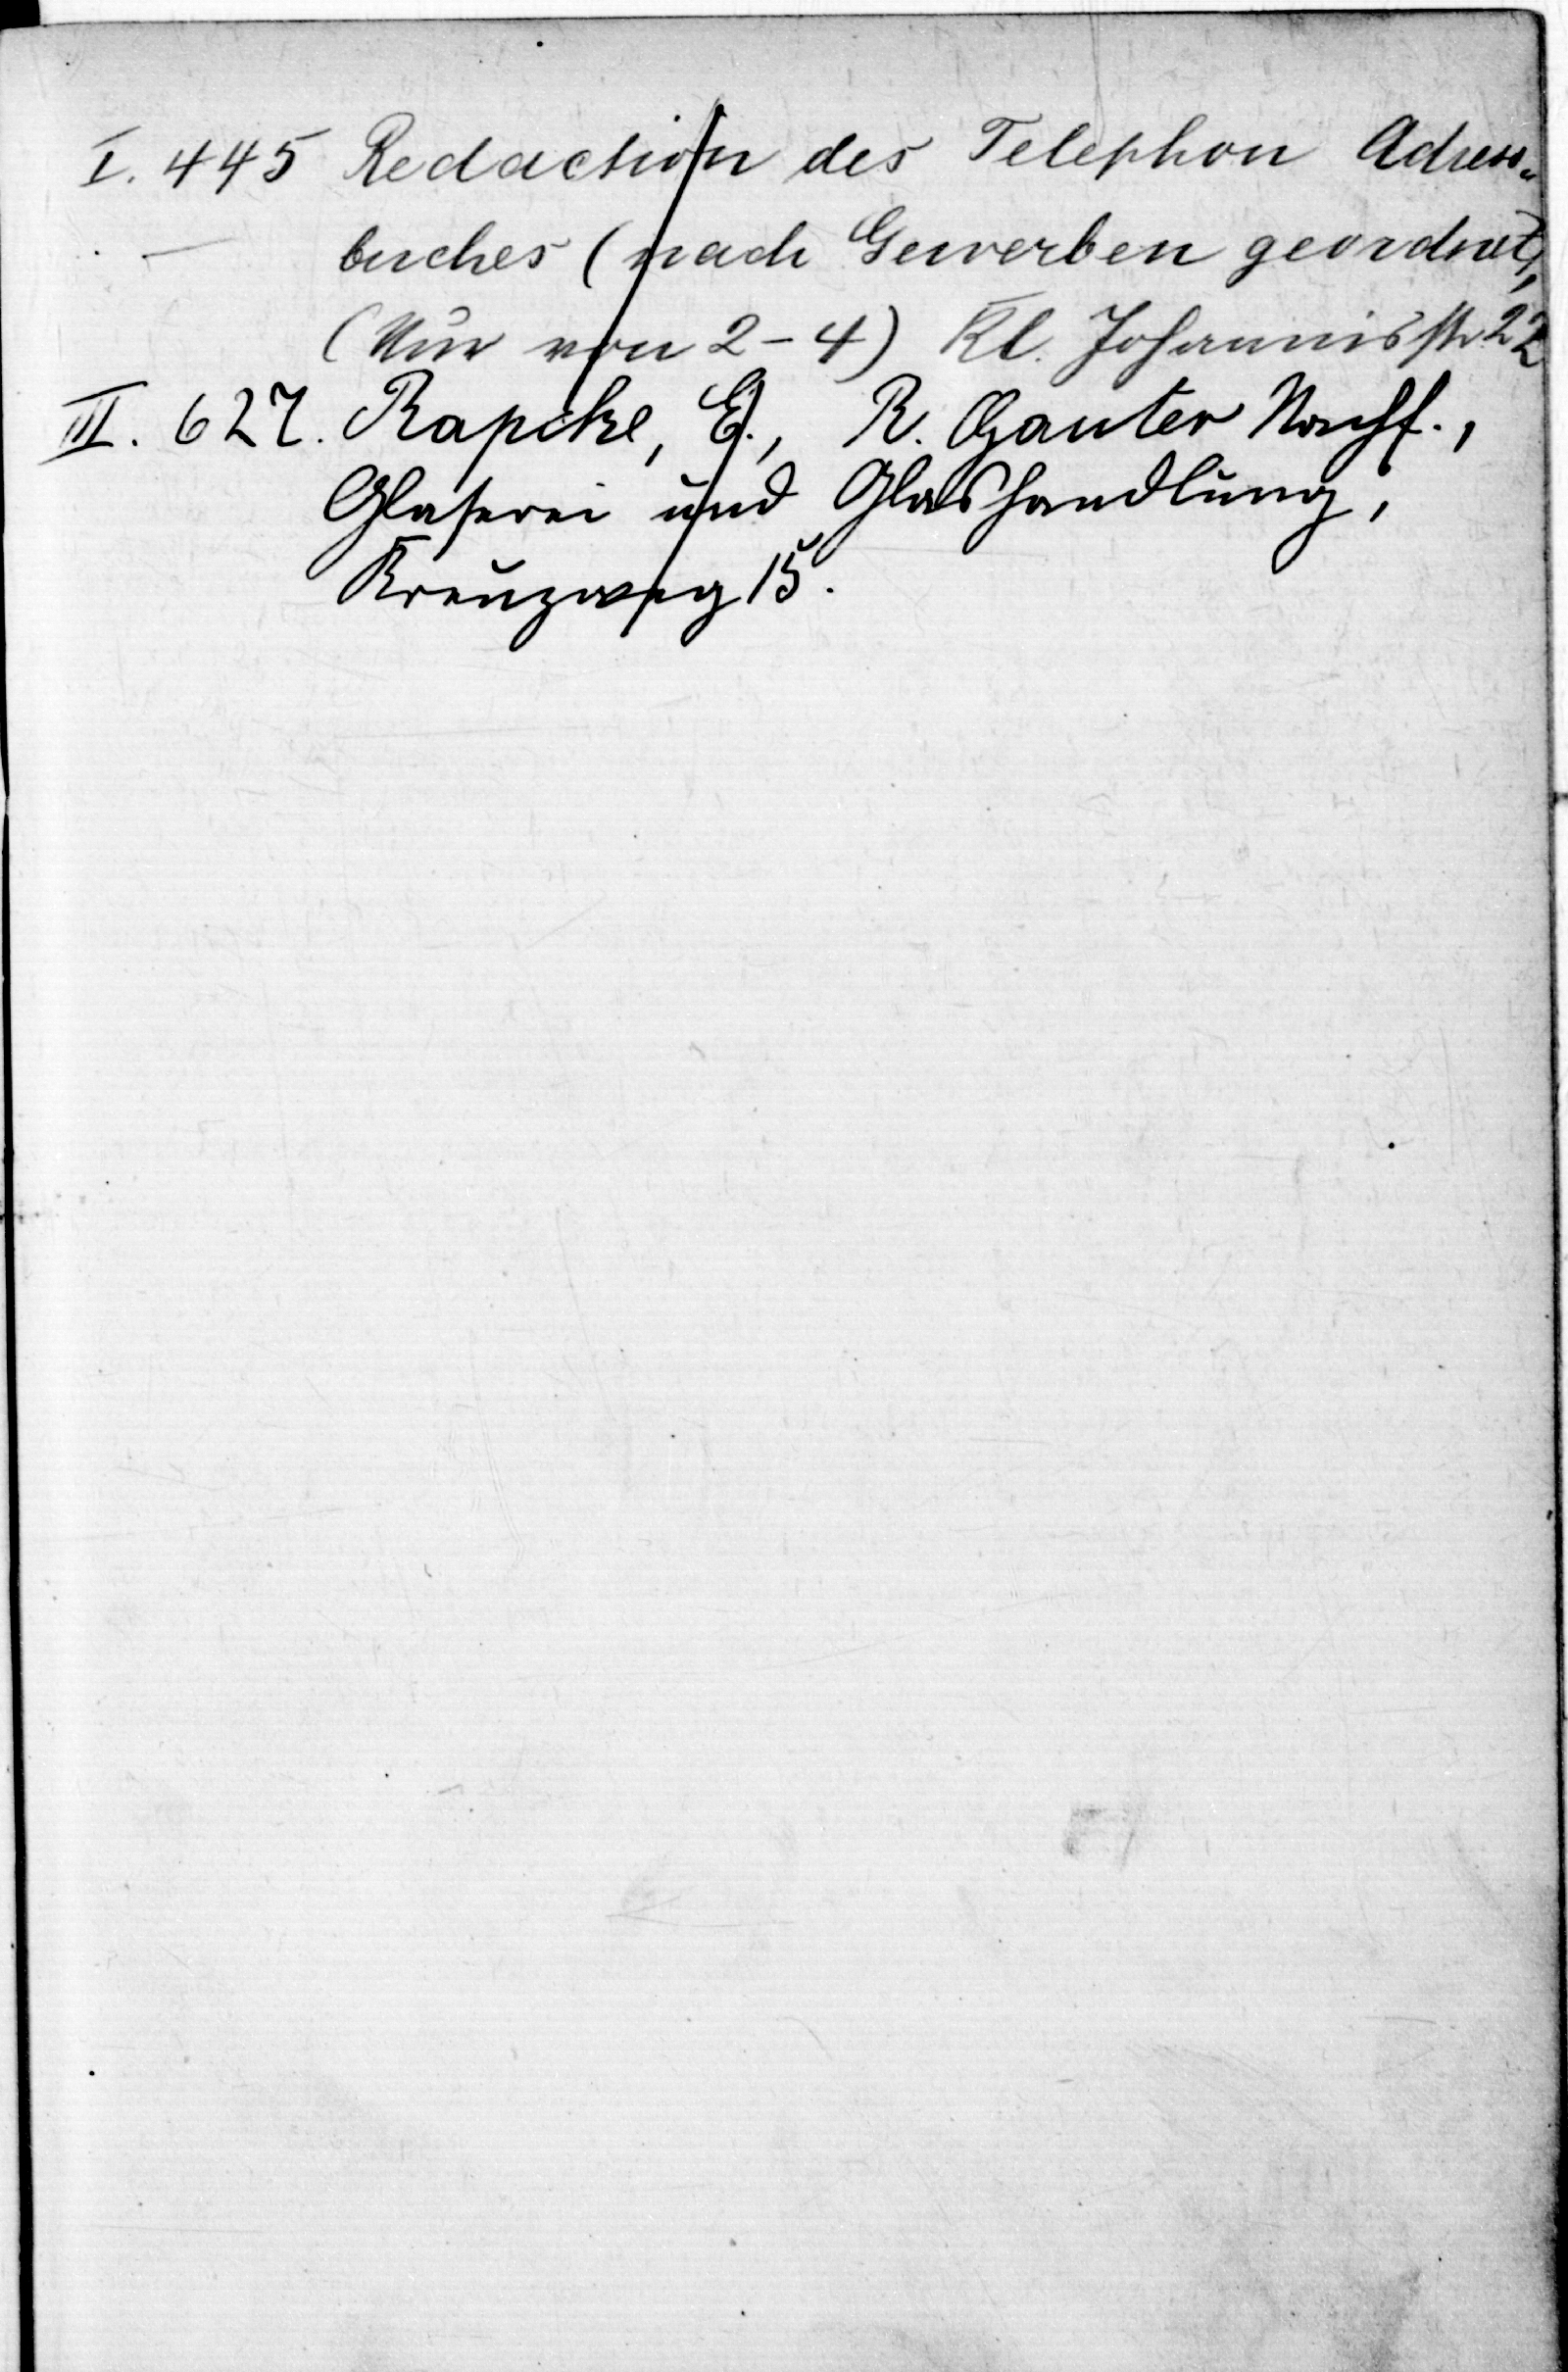 I. 445 Redaction des Telephon Adress-
buches (nach Gewerben geordnet),
(Nur von 2-4) Kl. Johannisstr 22
III. 627. Rapcke, E., R. Ganter Nachf.,
Glaserei und Glashandlung,
Kreuzweg 15.